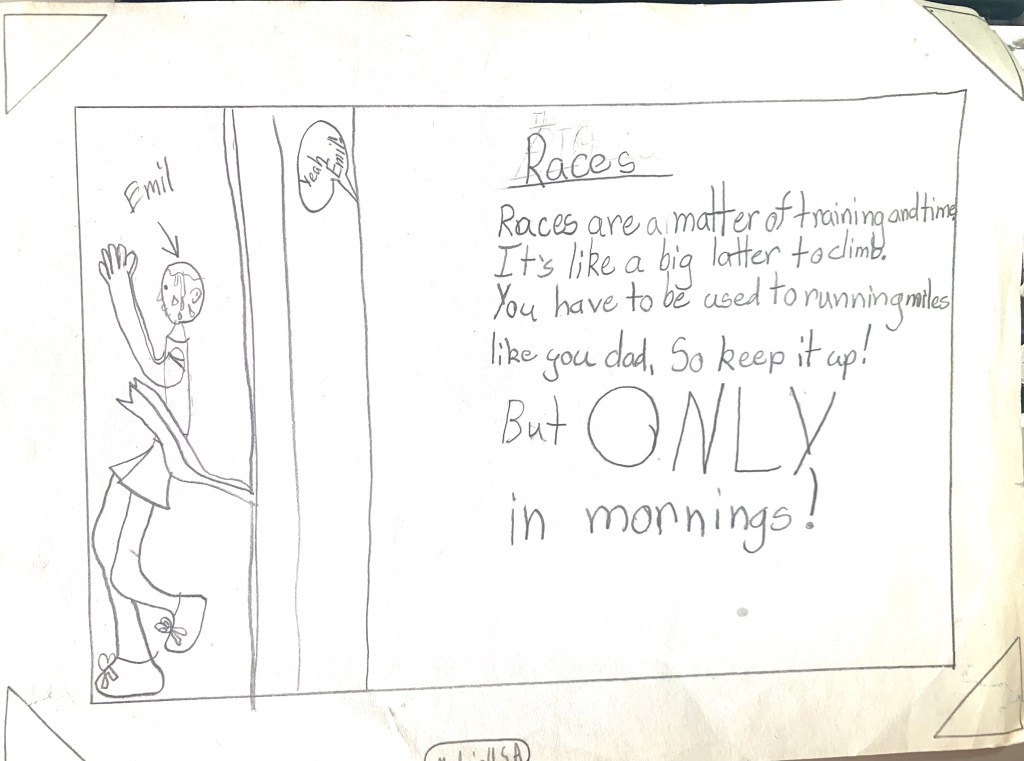 Emil
Yeah
Emil!
Races
Races are a matter of training and time
It's like a big latter to climb.
You have to be used to running miles
like you dad, So keep it up!
But ONLY
in mornnings!